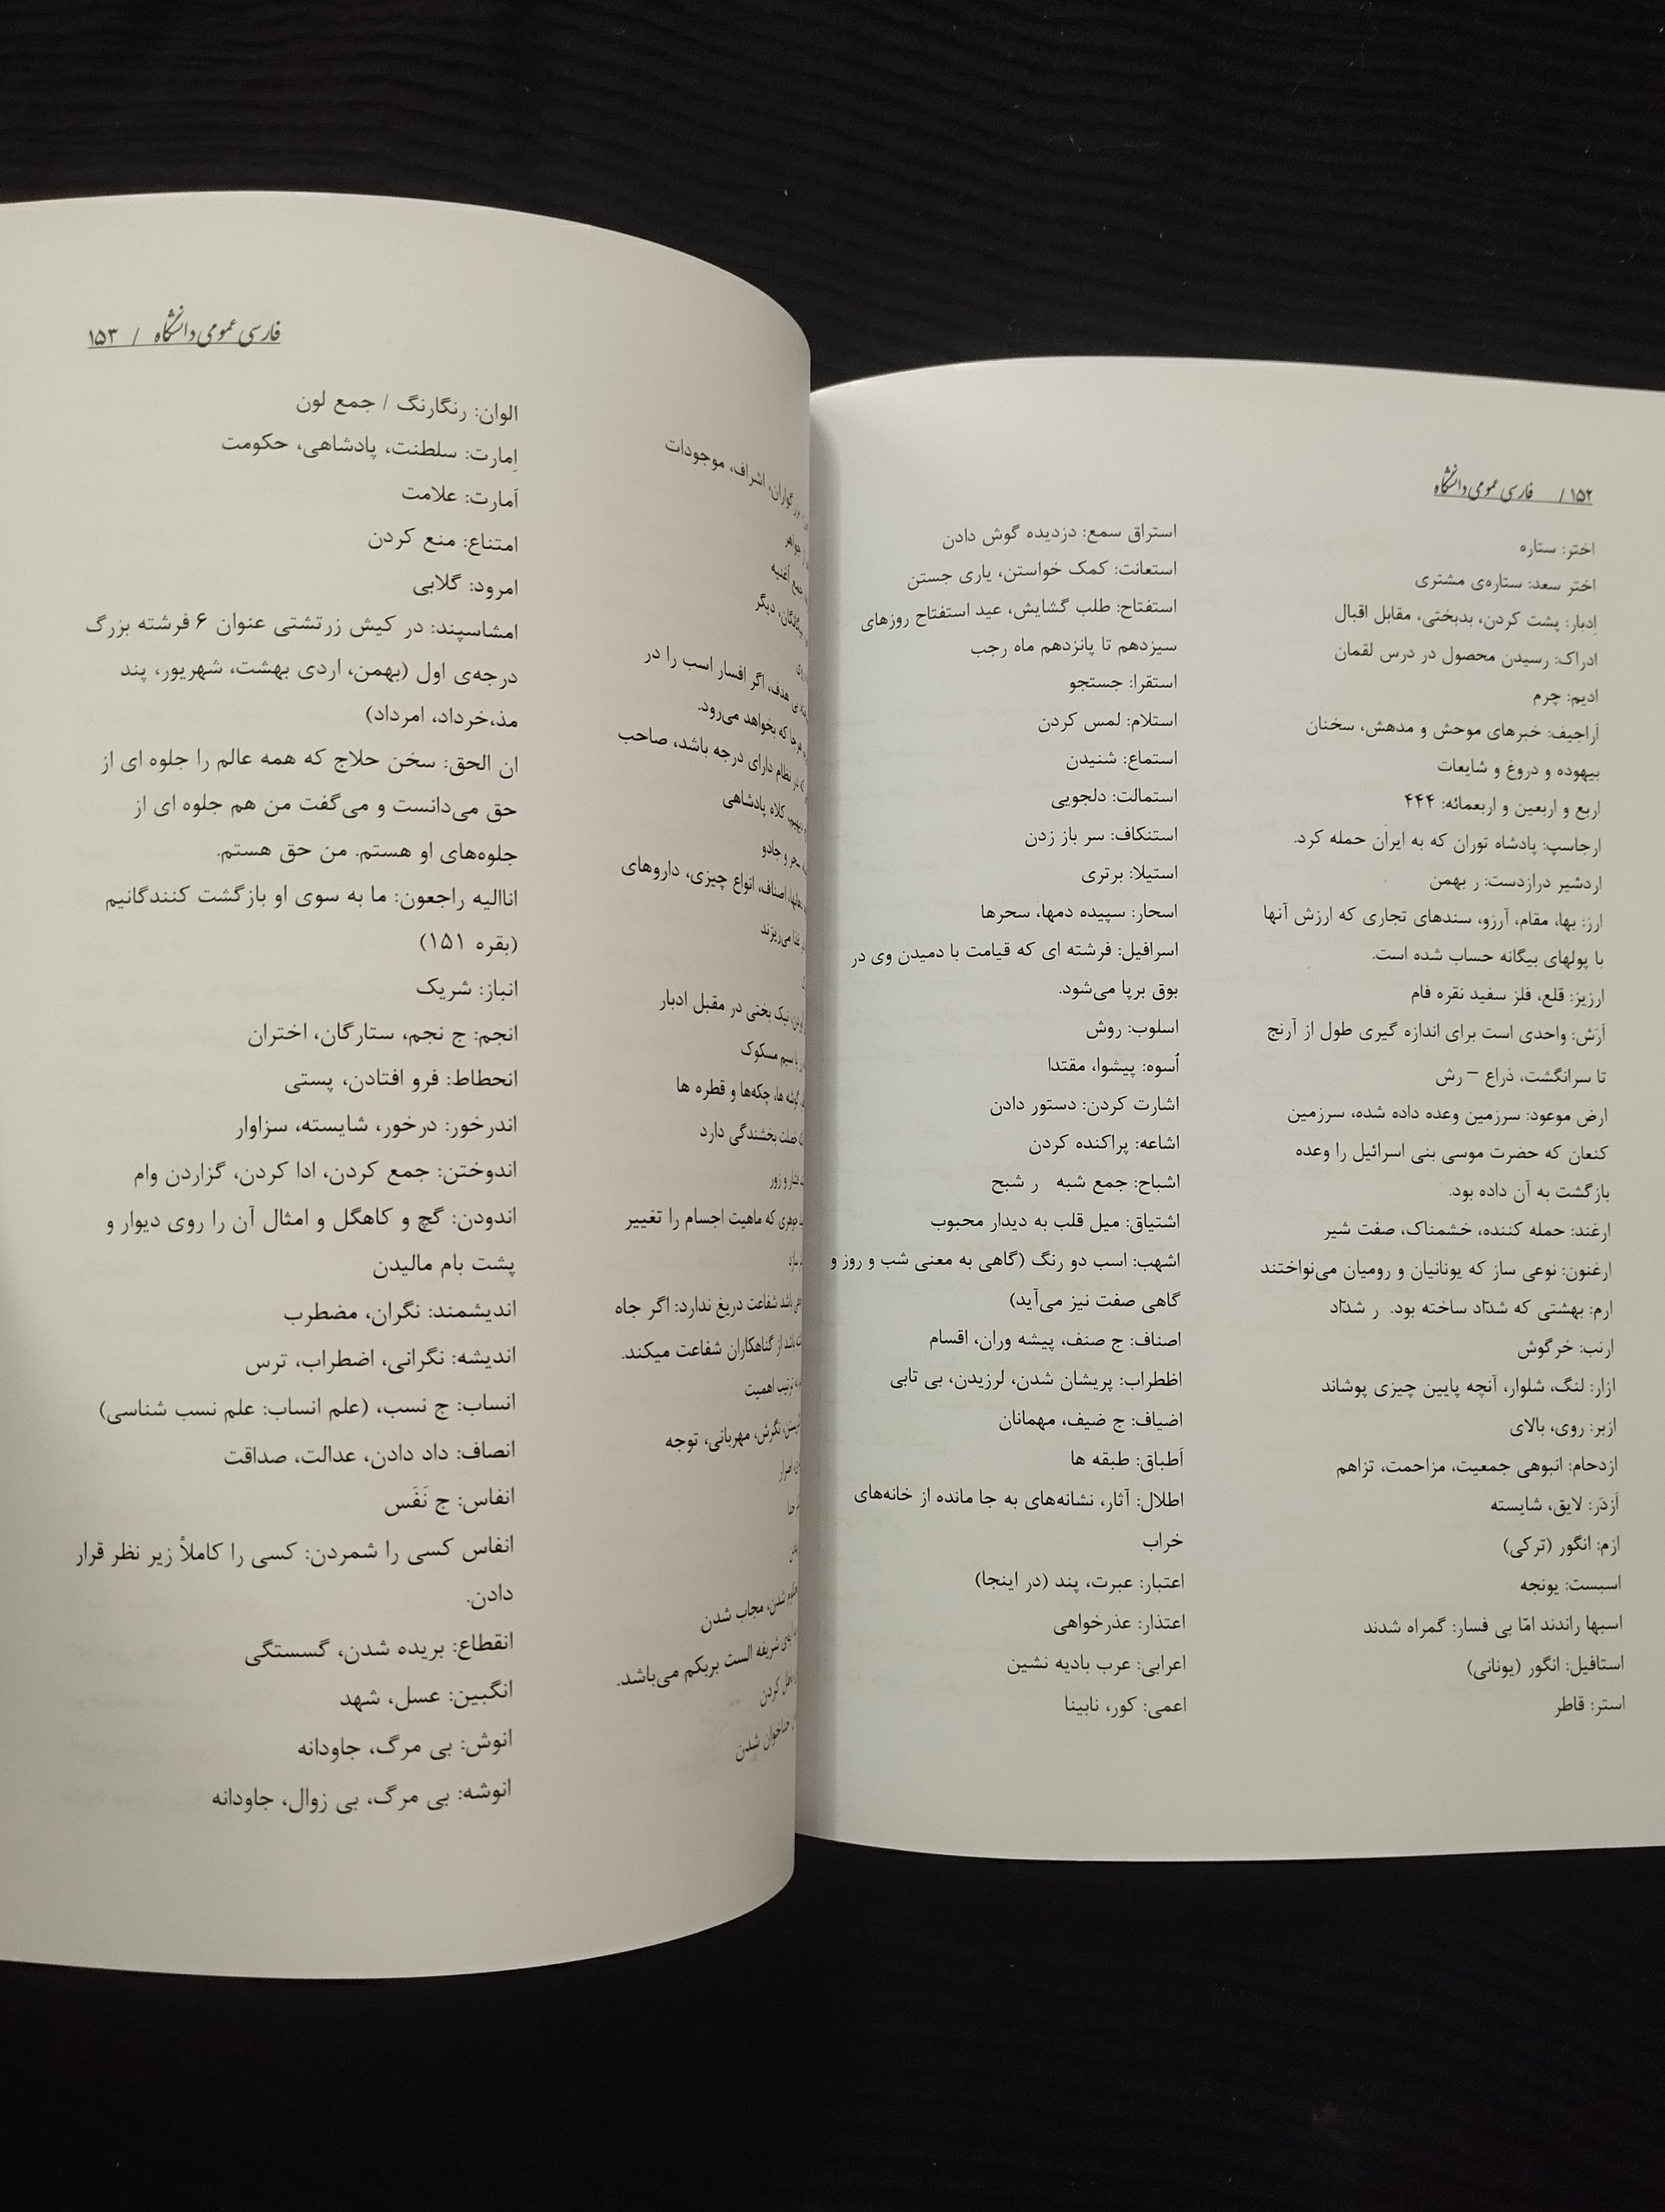 ۱۵۲ / فارسی عمومی دانشگاه
اختر: ستاره
اختر سعد: ستاره‌ی مشتری
اِدبار: پشت کردن، بدبختی، مقابل اقبال
ادراک: رسیدن محصول در درس لقمان
ادیم: چرم
اَراجیف: خبرهای موحش و مدهش، سخنان
بیهوده و دروغ و شایعات
اربع و اربعین و اربعمائه: ۴۴۴
ارجاسپ: پادشاه توران که به ایران حمله کرد.
اردشیر درازدست: ر بهمن
ارز: بها، مقام، آرزو، سندهای تجاری که ارزش آنها
با پولهای بیگانه حساب شده است.
ارزیز: قلع، فلز سفید نقره فام
اَرَش: واحدی است برای اندازه گیری طول از آرنج
تا سرانگشت، ذراع – رش
ارض موعود: سرزمین وعده داده شده، سرزمین
کنعان که حضرت موسی بنی اسرائیل را وعده
بازگشت به آن داده بود.
ارغند: حمله کننده، خشمناک، صفت شیر
ارغنون: نوعی ساز که یونانیان و رومیان می‌نواختند
ارم: بهشتی که شدّاد ساخته بود. ر شدّاد
ارنب: خرگوش
ازار: لنگ، شلوار، آنچه پایین چیزی پوشاند
ازبر: روی، بالای
ازدحام: انبوهی جمعیت، مزاحمت، تزاهم
اَزدَر: لایق، شایسته
ازم: انگور (ترکی)
اسبست: یونجه
اسبها راندند امّا بی فسار: گمراه شدند
استافیل: انگور (یونانی)
استر: قاطر
استراق سمع: دزدیده گوش دادن
استعانت: کمک خواستن، یاری جستن
استفتاح: طلب گشایش، عید استفتاح روزهای
سیزدهم تا پانزدهم ماه رجب
استقرا: جستجو
استلام: لمس کردن
استماع: شنیدن
استمالت: دلجویی
استنکاف: سر باز زدن
استیلا: برتری
اسحار: سپیده دمها، سحرها
اسرافیل: فرشته ای که قیامت با دمیدن وی در
بوق برپا می‌شود.
اسلوب: روش
اُسوه: پیشوا، مقتدا
اشارت کردن: دستور دادن
اشاعه: پراکنده کردن
اشباح: جمع شبه ر شبح
اشتیاق: میل قلب به دیدار محبوب
اشهب: اسب دو رنگ (گاهی به معنی شب و روز و
گاهی صفت نیز می‌آید)
اصناف: ج صنف، پیشه وران، اقسام
اظطراب: پریشان شدن، لرزیدن، بی تابی
اضیاف: ج ضیف، مهمانان
اَطباق: طبقه ها
اطلال: آثار، نشانه‌های به جا مانده از خانه‌های
خراب
اعتبار: عبرت، پند (در اینجا)
اعتذار: عذرخواهی
اعرابی: عرب بادیه نشین
اعمی: کور، نابینا
فارسی عمومی دانشگاه / ۱۵۳
اشراف، موجودات
جواهر
جمع اغنیه
دیگر
هدف، اگر افسار اسب را در
هرجا که بخواهد می‌رود.
در نظام دارای درجه باشد، صاحب
کلاه پادشاهی
سحر و جادو
اصناف، انواع چیزی، داروهای
غذا می‌ریزند
نیک بختی در مقبل ادبار
سیم مسکوک
گوشه ها، چکه‌ها و قطره ها
خصلت بخشندگی دارد
فشار و زور
جوهری که ماهیت اجسام را تغییر
باشد شفاعت دریغ ندارد: اگر جاه
باشد از گناهکاران شفاعت میکند.
ترتیب اهمیت
نگرش، مهربانی، توجه
شدن، مجاب شدن
شریفه الست بربکم می‌باشد.
کردن
شدن
الوان: رنگارنگ / جمع لون
اِمارت: سلطنت، پادشاهی، حکومت
اَمارت: علامت
امتناع: منع کردن
امرود: گلابی
امشاسپند: در کیش زرتشتی عنوان ۶ فرشته بزرگ
درجه‌ی اول (بهمن، اردی بهشت، شهریور، پند
مذ،خرداد، امرداد)
ان الحق: سخن حلاج که همه عالم را جلوه ای از
حق می‌دانست و می‌گفت من هم جلوه ای از
جلوه‌های او هستم. من حق هستم.
اناالیه راجعون: ما به سوی او بازگشت کنندگانیم
(بقره ۱۵۱)
انباز: شریک
انجم: ج نجم، ستارگان، اختران
انحطاط: فرو افتادن، پستی
اندرخور: درخور، شایسته، سزاوار
اندوختن: جمع کردن، ادا کردن، گزاردن وام
اندودن: گچ و کاهگل و امثال آن را روی دیوار و
پشت بام مالیدن
اندیشمند: نگران، مضطرب
اندیشه: نگرانی، اضطراب، ترس
انساب: ج نسب، (علم انساب: علم نسب شناسی)
انصاف: داد دادن، عدالت، صداقت
انفاس: ج نَفَس
انفاس کسی را شمردن: کسی را کاملاً زیر نظر قرار
دادن.
انقطاع: بریده شدن، گسستگی
انگبین: عسل، شهد
انوش: بی مرگ، جاودانه
انوشه: بی مرگ، بی زوال، جاودانه